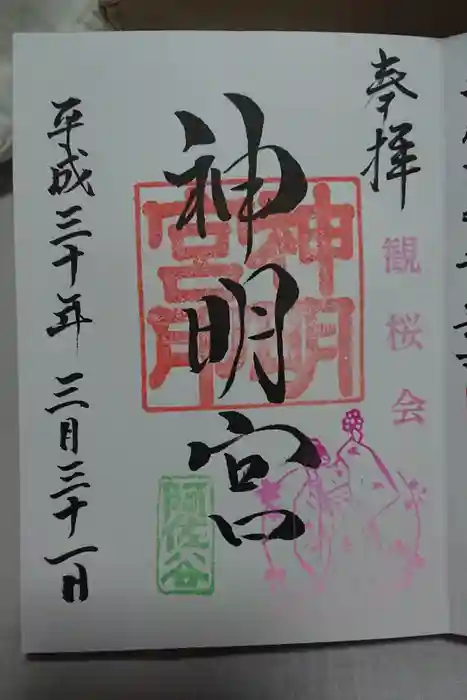 奉拝
観桜会
神明宮
神明
宮印
阿佐谷
平成三十年三月三十一日